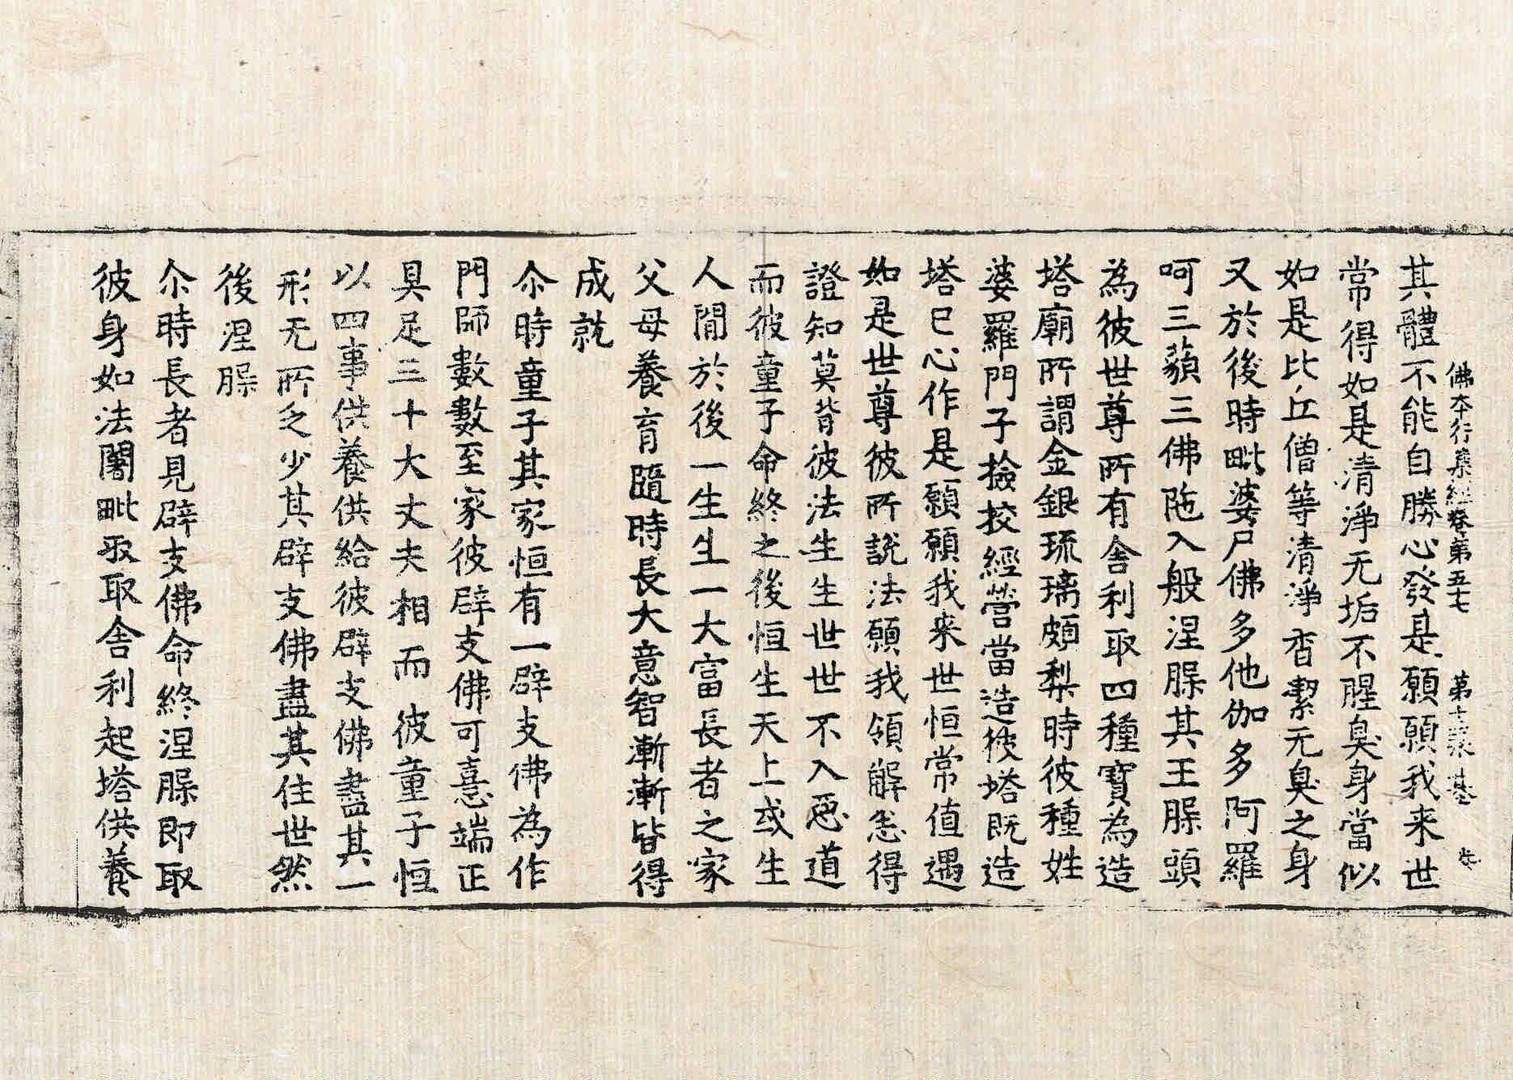 佛本行集經卷第五七 第十張 基
其體不能自勝心發是願願我来世
常得如是清淨无垢不腥臭身當似
如是比丘僧等清淨香潔无臭之身
又於後時毗婆尸佛多他伽多阿羅
呵三藐三佛陁入般涅槃其王槃頭
為彼世尊所有舍利取四種寶為造
塔廟所謂金銀琉璃頗梨時彼種姓
婆羅門子撿挍經營當造彼塔既造
塔已心作是願願我来世恒常值遇
如是世尊彼所說法願我領解悉得
證知莫背彼法生生世世不入惡道
而彼童子命終之後恒生天上或生
人間於後一生生一大富長者之家
父母養育隨時長大意智漸漸皆得
成就
尒時童子其家恒有一辟支佛為作
門師數數至家彼辟支佛可憙端正
具足三十大丈夫相而彼童子恒
以四事供養供給彼辟支佛盡其一
形无所乏少其辟支佛盡其住世然
後涅槃
尒時長者見辟支佛命終涅槃即取
彼身如法闍毗收取舍利起塔供養